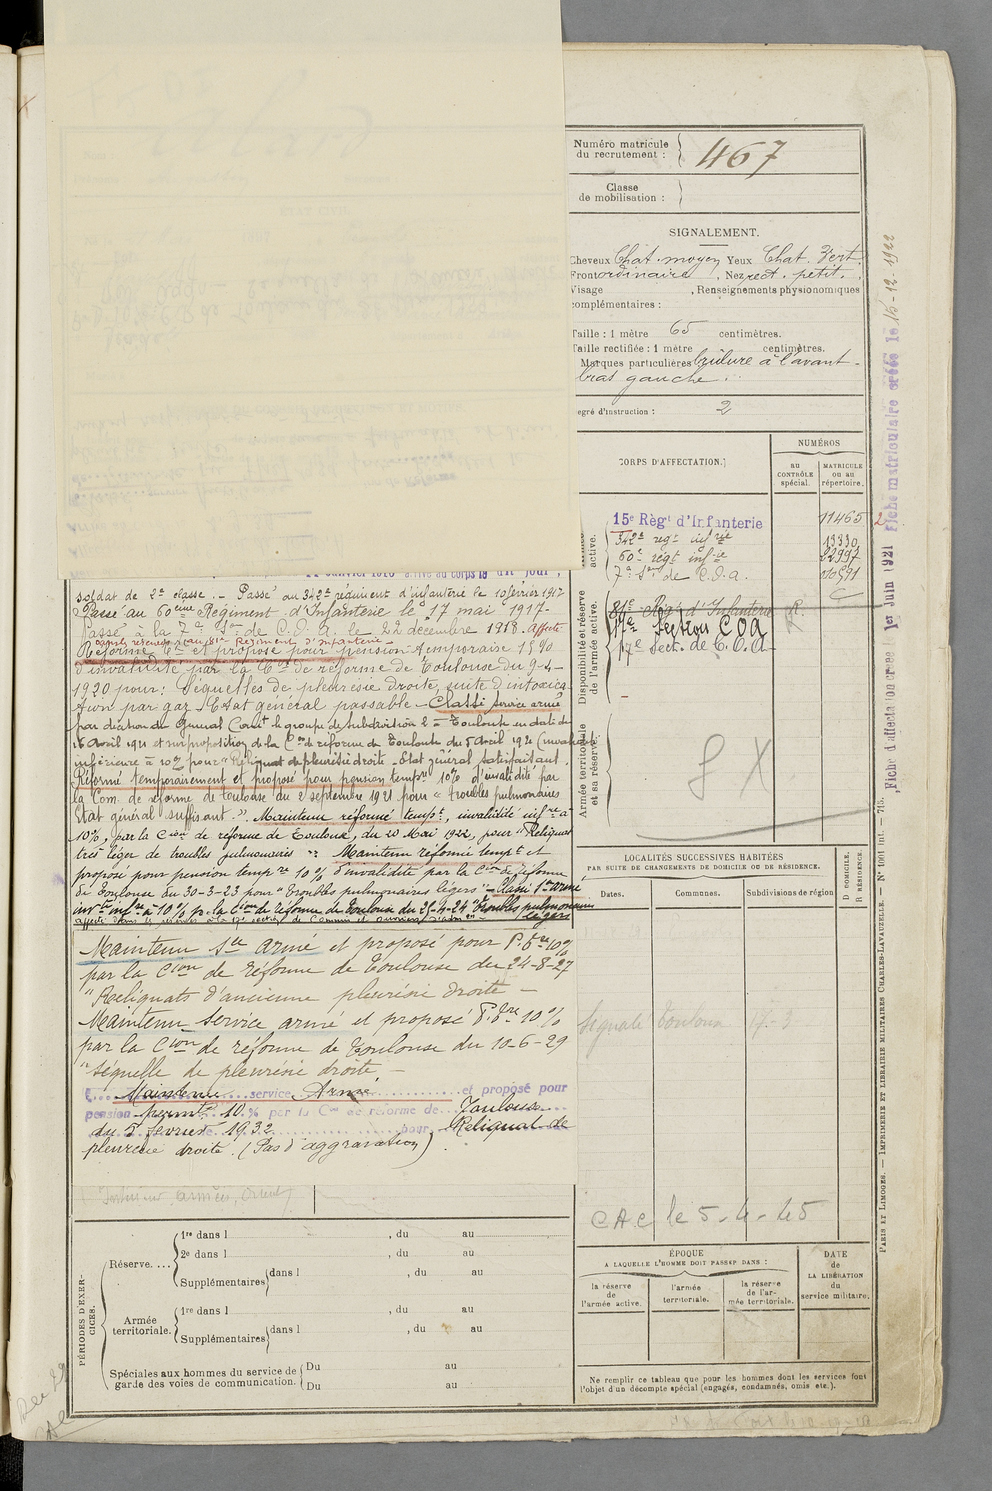 Numéro matricule du recrutement : 467
Classe de mobilisation :
SIGNALEMENT.
Cheveux Chât. moyen Yeux Chat. Vert.
Front ordinaire, Nez rect. petit.
Visage , Renseignements physionomiques
complémentaires :
Taille : 1 mètre 65 centimètres.
Taille rectifiée : 1 mètre centimètres.
Marques particulières brûlure à l'avant-
bras gauche.
egré d'instruction : 2
CORPS D'AFFECTATION.
NUMÉROS
au CONTRÔLE spécial.
MATRICULE ou au répertoire.
15e Règt d'Infanterie 11465
342e regt infrie 13330
60e régt infie 22992
7e Son de C.O.A.
81e Régt d'Infanterie
17e Section COA
17e Sect. de C.O.A.
active.
Disponibilité et réserve de l'armée active.
Armée territoriale et sa réserve.
Fiche d'affectation créée 1er Juin 1921
Fiche matriculaire créée le 15-12-1922
arrivé au corps le dit jour,
soldat de 2e classe. - Passé au 342e régiment d'infanterie le 10 février 1917
Passé au 60ème Régiment d'Infanterie le 17 mai 1917-
Passé à la 7e Son de C.O.A. le 22 décembre 1918. Affecté
dans la réserve au 81e Régiment d'Infanterie
Réformé et proposé pour pension temporaire 15%
d'invalidité par la Con de réforme de Toulouse du 9-4-
1920 pour : Séquelles de pleurésie droite, suite d'intoxica-
tion par gaz. Etat général passable - Classé service armé
par décision du Général Comt le groupe de subdivision à Toulouse en date du
16 Avril 1921 et sur proposition de la Con de réforme de Toulouse du 5 Avril 1921 (invalidité
inférieure à 10% pour "Reliquat de pleurésie droite - Etat général satisfaisant.
Réformé temporairement et proposé pour pension tempre 10% d'invalidité par
la Com. de réforme de Toulouse du 2 septembre 1921 pour "troubles pulmonaires
Etat général suffisant". Maintenu réformé tempt, invalidité infre à
10%, par la Cion de réforme de Toulouse, du 20 Mai 1922, pour "Reliquat
très léger de troubles pulmonaires" Maintenu réformé tempt et
proposé pour pension tempre 10% d'invalidité par la Cion de réforme
de Toulouse du 30-3-23 pour "troubles pulmonaires légers" - Classé Sce armé
invté infre à 10% p. la Cion de réforme de Toulouse du 25-4-24 "Troubles pulmonaires
légers
Maintenu Sce armé et proposé pour P. 10%
par la Cion de réforme de Toulouse du 24-8-27
"Reliquats d'ancienne pleurésie droite -
Maintenu service armé et proposé P. 10%
par la Cion de réforme de Toulouse du 10-6-29
"séquelle de pleurésie droite -
Maintenu service Armé et proposé pour
pension permte 10% par la Con de réforme de Toulouse
du 5 février 1932 pour Reliquat de
pleurésie droite. (Pas d'aggravation)
Intérieur armées, Orient
LOCALITÉS SUCCESSIVES HABITÉES
PAR SUITE DE CHANGEMENTS DE DOMICILE OU DE RÉSIDENCE.
Dates. Communes. Subdivisions de région
D DOMICILE. R RÉSIDENCE.
Signalé Toulouse
CAC le 5-4-45
ÉPOQUE
A LAQUELLE L'HOMME DOIT PASSER DANS :
la réserve de l'armée active.
l'armée territoriale.
la réserve de l'armée territoriale.
DATE de LA LIBÉRATION du service militaire.
Ne remplir ce tableau que pour les hommes dont les services font
l'objet d'un décompte spécial (engagés, condamnés, omis etc.).
PÉRIODES D'EXERCICES.
Réserve....
1re dans l , du au
2e dans l , du au
Supplémentaires dans l , du au
Armée territoriale.
1re dans l , du au
Supplémentaires dans l , du au
Spéciales aux hommes du service de
garde des voies de communication.
Du au
Du au
PARIS ET LIMOGES. — IMPRIMERIE ET LIBRAIRIE MILITAIRES CHARLES-LAVAUZELLE. — No 1001 Int. — 715.